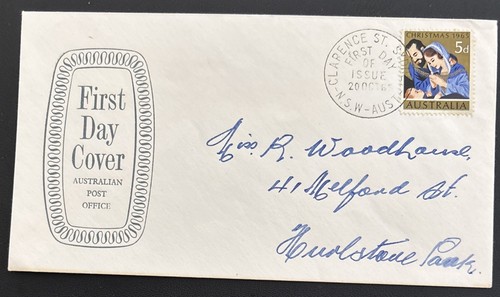 First
Day
Cover
AUSTRALIAN
POST
OFFICE
CLARENCE ST.
FIRST DAY
OF
ISSUE
20 OCT 65
N.S.W-AUST
CHRISTMAS 1965
5d
AUSTRALIA
Miss R. Woodhouse,
41 Melford St.
Hurlstone Park.